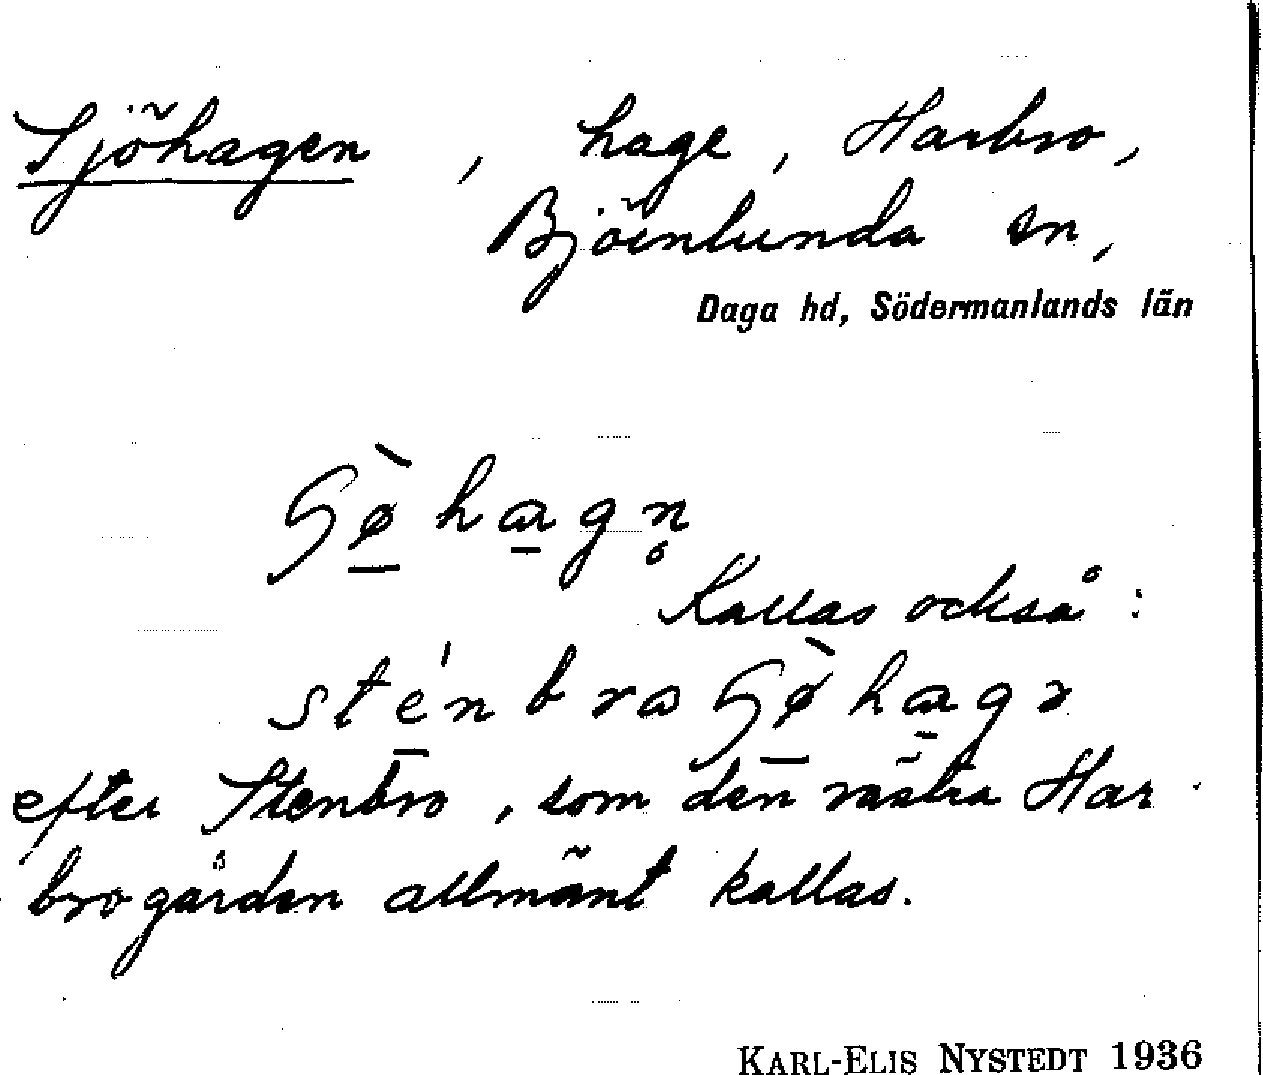 Sjöhagen, hage, Harbro,
Björnlunda sn,
Daga hd, Södermanlands län
Kallas också:
efter Stenbro, som den västra Har-
brogården allmänt kallas.
KARL-ELIS NYSTEDT 1936